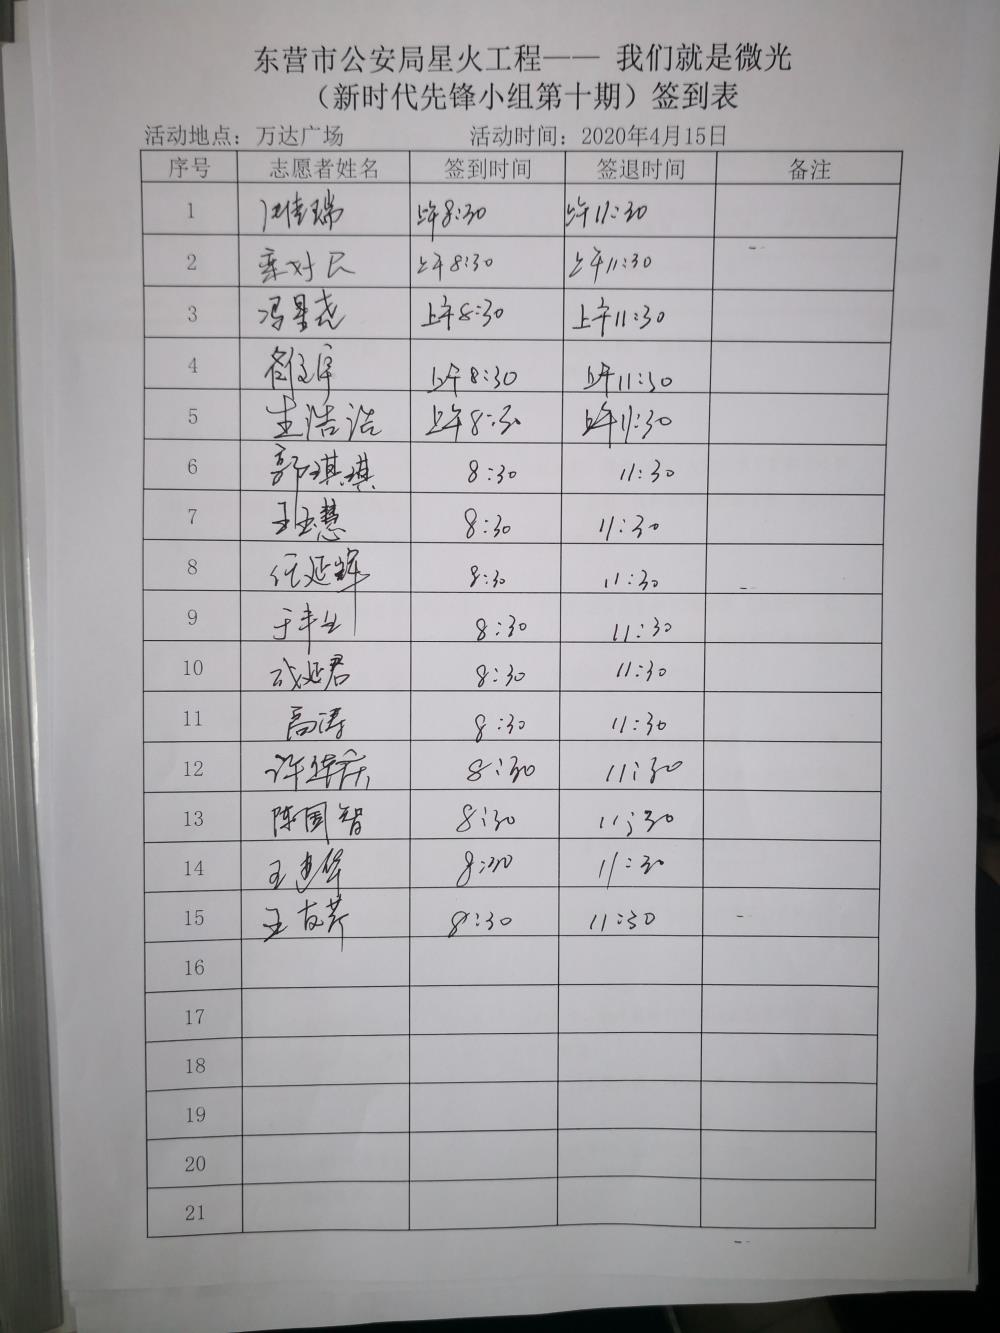 东营市公安局星火工程—— 我们就是微光
（新时代先锋小组第十期）签到表
活动地点：万达广场 活动时间：2020年4月15日
序号 志愿者姓名 签到时间 签退时间 备注
1 上午8:30 上午11:30
2 上午8:30 上午11:30
3 冯星尧 上午8:30 上午11:30
4 上午8:30 上午11:30
5 生浩浩 上午8:30 上午11:30
6 郭琪琪 8:30 11:30
7 王玉慧 8:30 11:30
8 任延辉 8:30 11:30
9 8:30 11:30
10 成延君 8:30 11:30
11 高涛 8:30 11:30
12 8:30 11:30
13 陈国智 8:30 11:30
14 王建华 8:30 11:30
15 王友芹 8:30 11:30
16
17
18
19
20
21